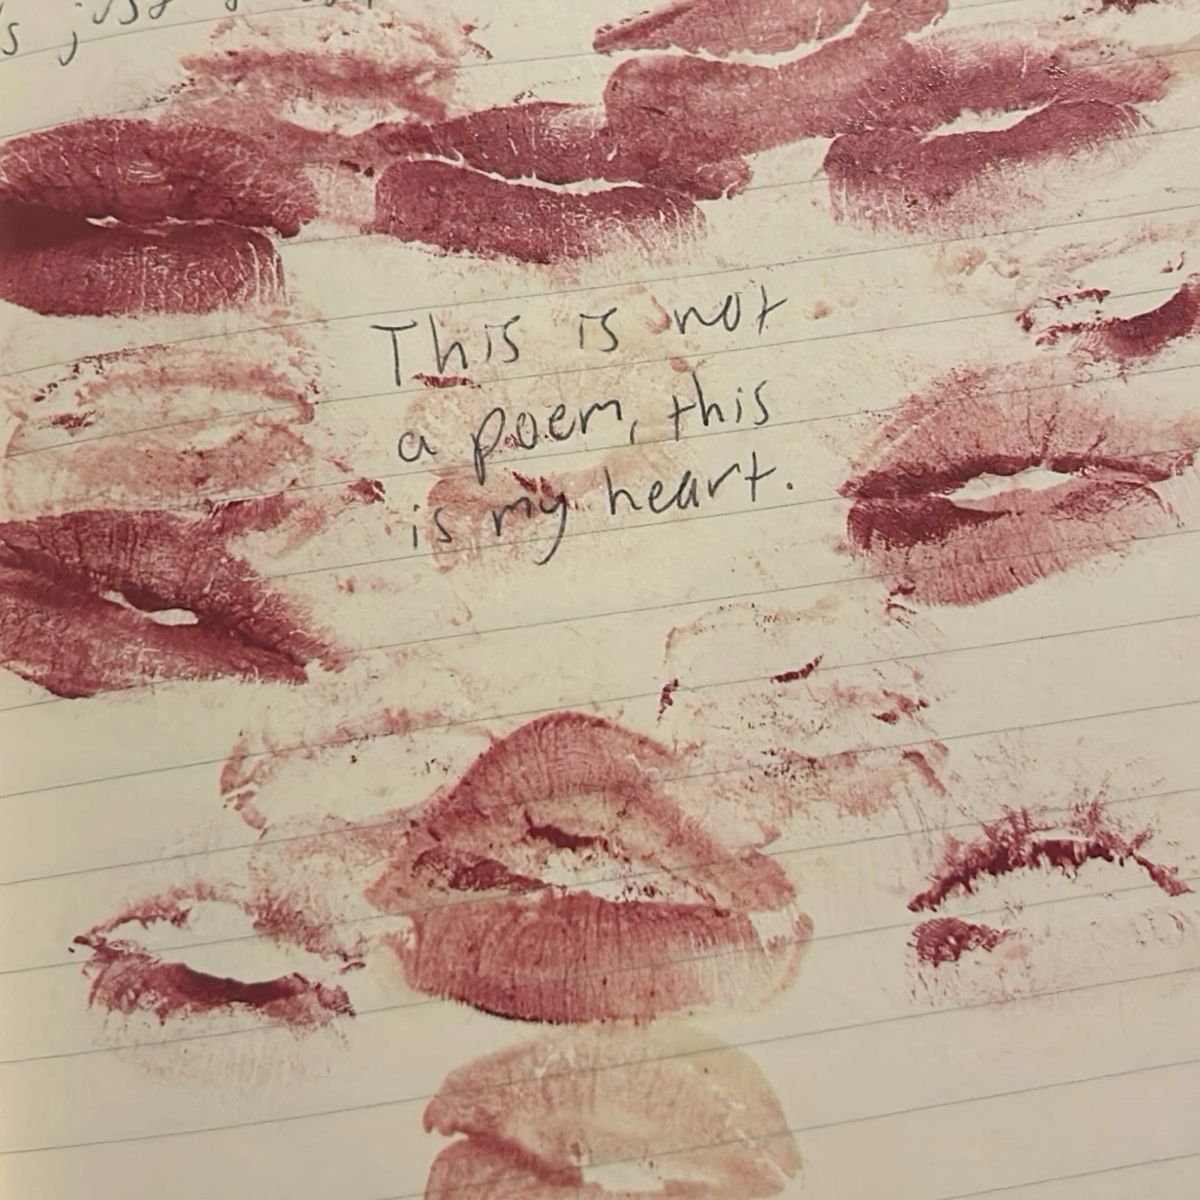 is just
This is not
a poem, this
is my heart.